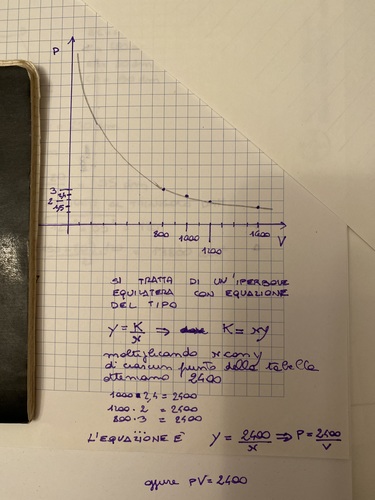 P
3
2,4
2
1,5
800
1000
1200
1600
V
SI TRATTA DI UN'IPERBOLE
EQUILATERA CON EQUAZIONE
DEL TIPO
y = K/x ⇒ K = xy
moltiplicando x con y
di ciascun punto della tabella
otteniamo 2400
1000 · 2,4 = 2400
1200 · 2 = 2400
800 · 3 = 2400
...
L'EQUAZIONE È y = 2400/x ⇒ P = 2400/V
oppure PV = 2400